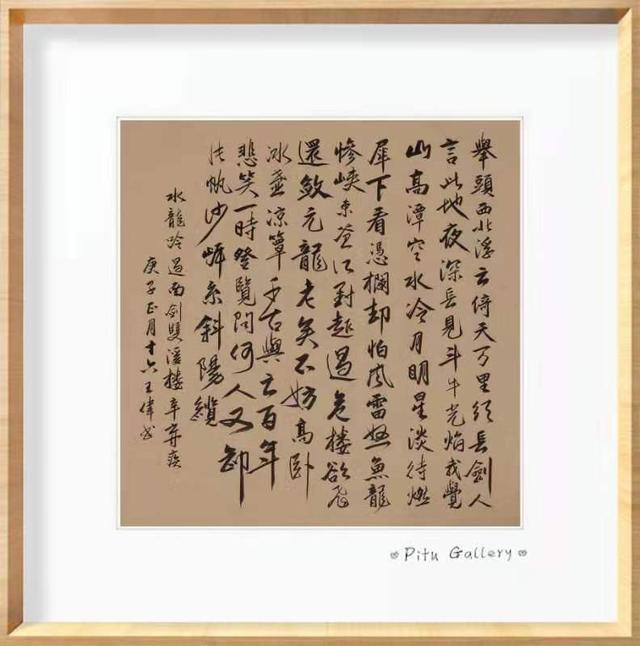 舉頭西北浮云倚天万里須長劍人
言此地夜深長見斗牛光焰我覺
山高潭空水冷月明星淡待燃
犀下看憑欄却怕風雷怒魚龍
慘峽束蒼江對起過危樓欲飛
還斂元龍老矣不妨高卧
冰壺凉簟千古興亡百年
悲笑一時登覽問何人又卸
片帆沙岸系斜陽纜
水龍吟過南劍雙溪樓辛弃疾
庚子正月十六王偉書
Pitu Gallery